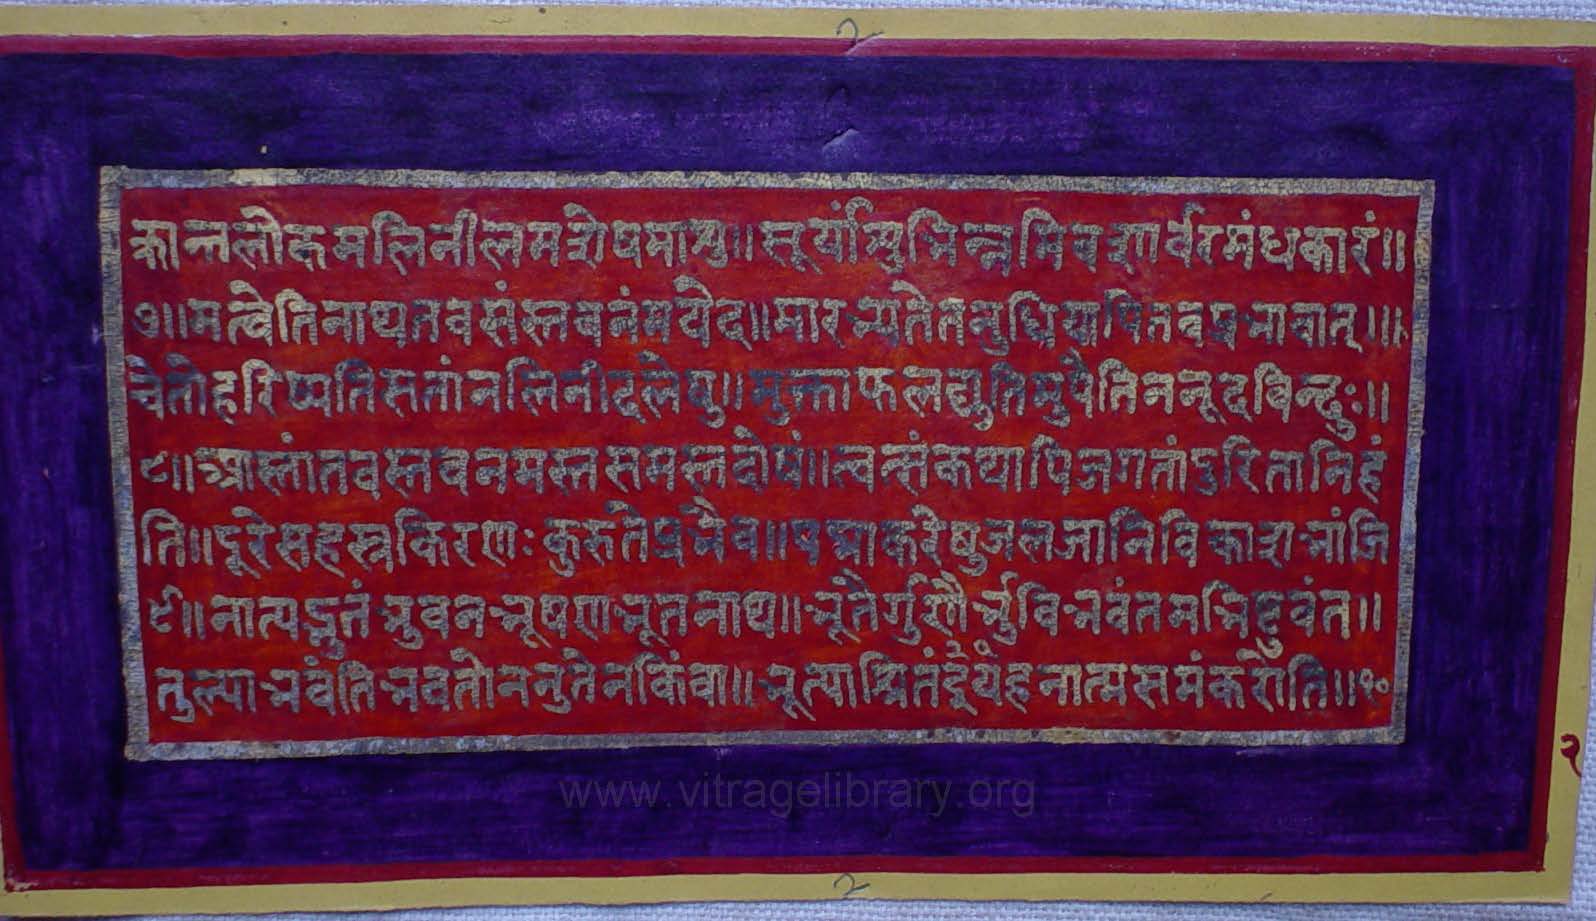 २
क्रान्तलोकमलिनीलमशेषमाशु॥सूर्यांशुभिन्नमिवशार्वरमंधकारं॥
७॥मत्वेतिनाथतवसंस्तवनंमयेद॥मारभ्यतेतनुधियापितवप्रभावात्॥
चेतोहरिष्यतिसतांनलिनीदलेषु॥मुक्ताफलद्युतिमुपैतिननूदबिन्दुः॥
८॥आस्तांतवस्तवनमस्तसमस्तदोषं॥त्वत्संकथापिजगतांदुरितानिहं
ति॥दूरेसहस्रकिरणःकुरुतेप्रभैव॥पद्माकरेषुजलजानिविकाशभांजि
९॥नात्यद्भुतंभुवनभूषणभूतनाथ॥भूतैर्गुणैर्भुविभवंतमभिष्टुवंत॥
तुल्याभवंतिभवतोननुतेनकिंवा॥भूत्याश्रितंयइहनात्मसमंकरोति॥१०
२
www.vitragelibrary.org
२